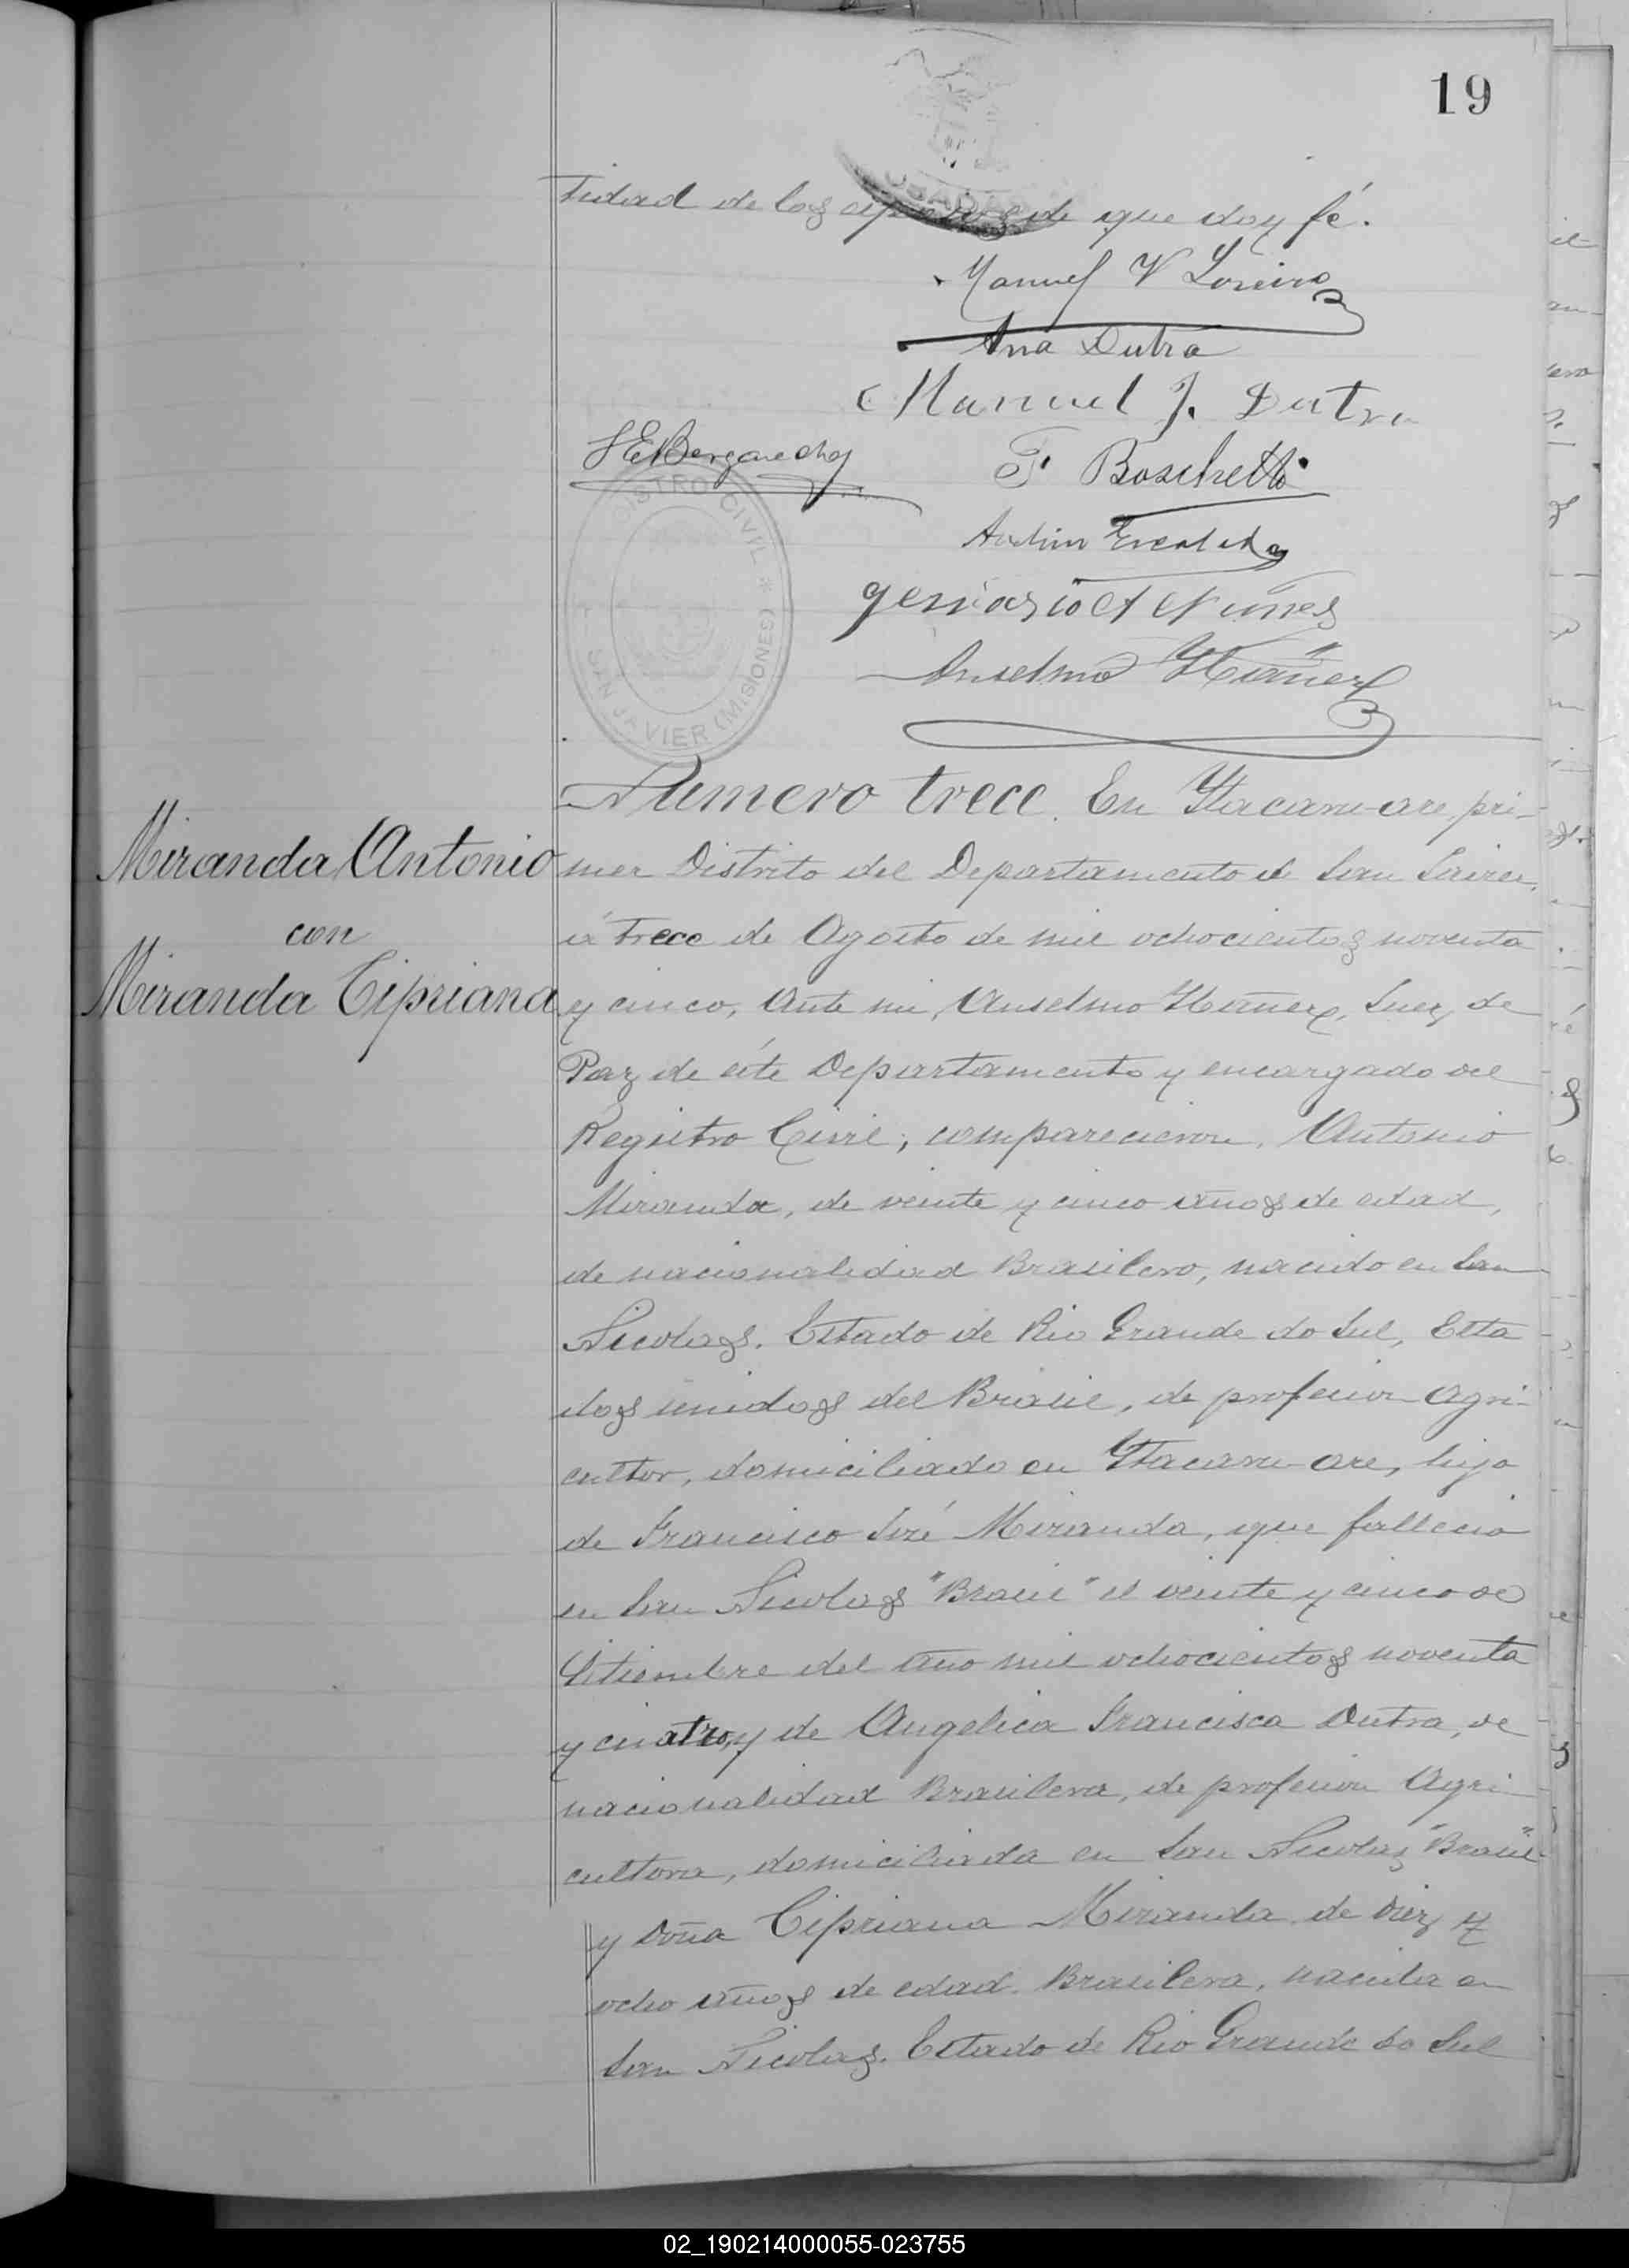 19
tidad de los de que doy fé.
Manuel V Loreiro
Ana Dutra
Manuel J. Dutra
F. Boschetti
gervasio A Nunes
Anselmo Ybañez
REGISTRO CIVIL * SAN JAVIER (MISIONES)
Numero trece. En Ytacaru-are, pri-
mer Distrito del Departamento de San Javier,
á trece de Agosto de mil ochocientos noventa
y cinco, Ante mi, Anselmo Ybañez, Juez de
Paz de éste Departamento y encargado del
Registro Civil, comparecieron, Antonio
Miranda, de veinte y cinco años de edad,
de nacionalidad Brasilero, nacido en San
Nicolas. Estado de Rio Grande do Sul, Esta
dos unidos del Brasil, de profesion Agri-
cultor, domiciliado en Ytacaru-are, hijo
de Francisco José Miranda, que fallecio
en San Nicolas "Brasil" el veinte y cinco de
Setiembre del año mil ochocientos noventa
y cuatro, y de Angelica Francisca Dutra, de
nacionalidad Brasilera, de profesion Agri
cultora, domiciliada en San Nicolas "Brasil"
y Doña Cipriana Miranda de diez y
ocho años de edad. Brasilera, nacida en
San Nicolas. Estado de Rio Grande do Sul
Miranda Antonio
con
Miranda Cipriana
02_190214000055-023755